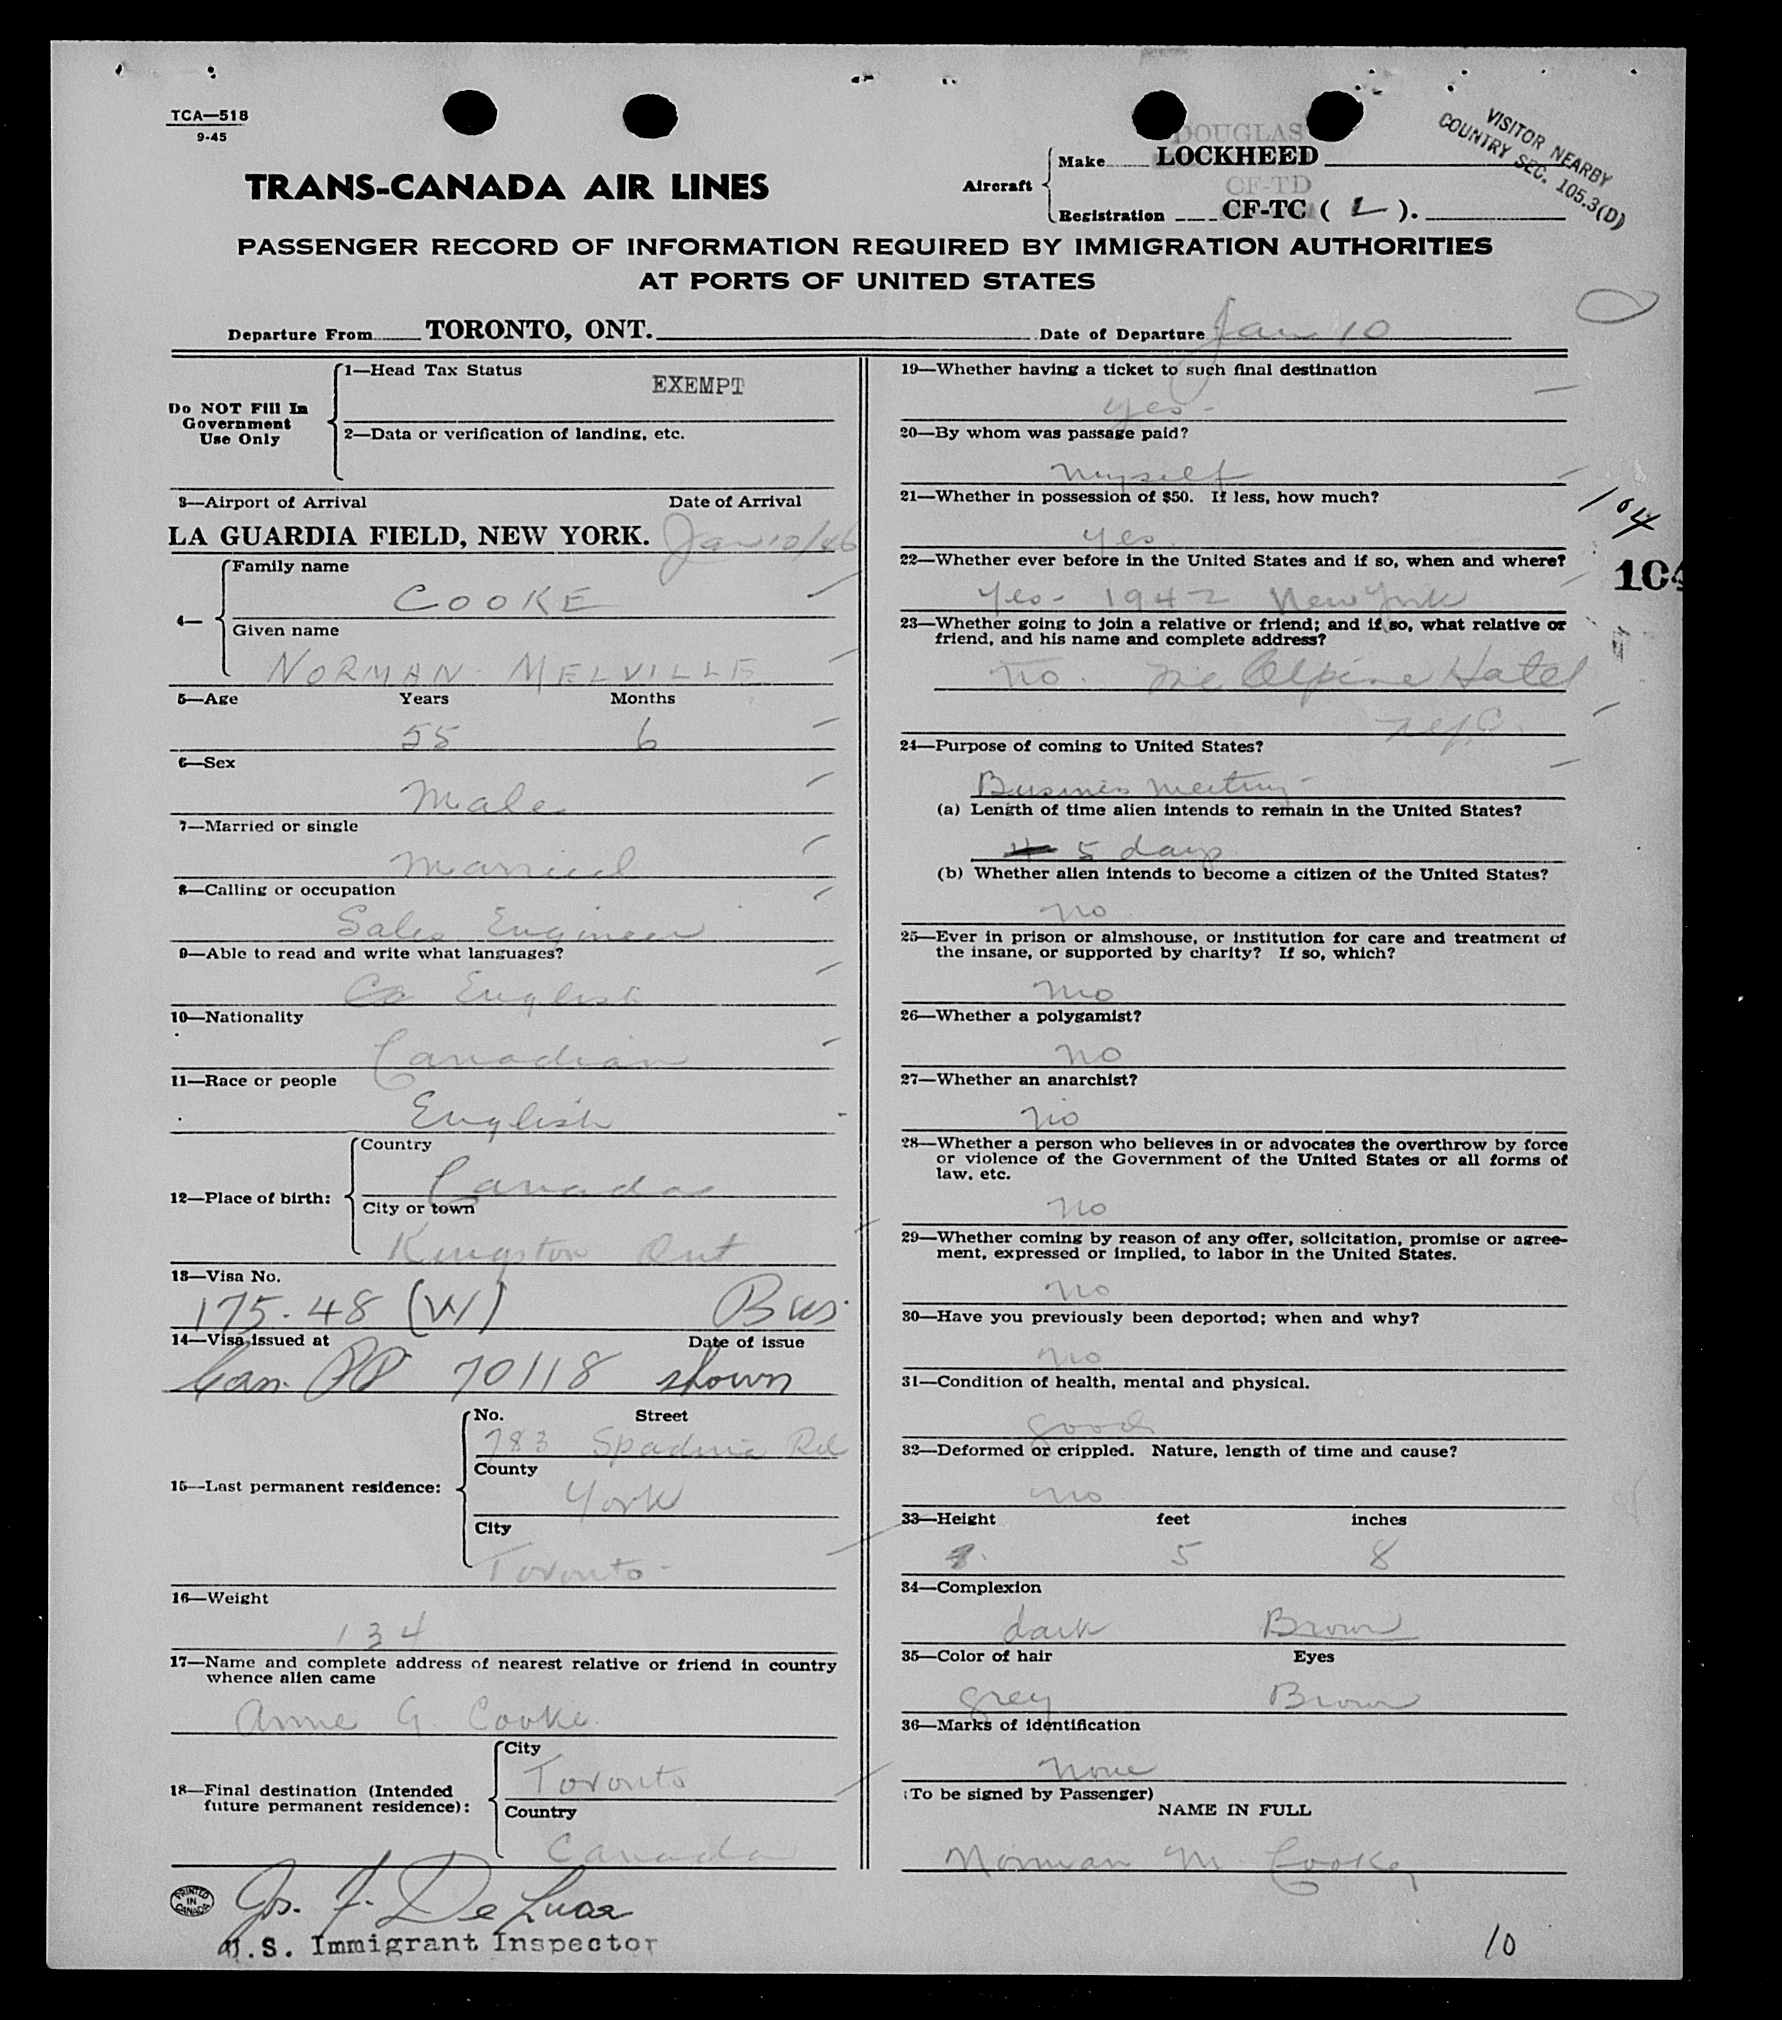 TCA—518
9-45
TRANS-CANADA AIR LINES
DOUGLAS
Aircraft
Make LOCKHEED
CF-TD
Registration CF-TC ( L ).
VISITOR NEARBY
COUNTRY SEC. 105.3(D)
PASSENGER RECORD OF INFORMATION REQUIRED BY IMMIGRATION AUTHORITIES
AT PORTS OF UNITED STATES
Departure From TORONTO, ONT. Date of Departure Jan 10
Do NOT Fill In
Government
Use Only
1—Head Tax Status
EXEMPT
2—Data or verification of landing, etc.
3—Airport of Arrival Date of Arrival
LA GUARDIA FIELD, NEW YORK. Jan 10/46
4— Family name
COOKE
Given name
NORMAN MELVILLE
5—Age Years Months
55 6
6—Sex
Male
7—Married or single
Married
8—Calling or occupation
Sales Engineer
9—Able to read and write what languages?
English
10—Nationality
Canadian
11—Race or people
English
12—Place of birth:
Country
Canada
City or town
Kingston Ont
13—Visa No.
175.48 (W) Bus.
14—Visa issued at Date of issue
Can. PP 70118 shown
15—Last permanent residence:
No. Street
783 Spadina Rd
County
York
City
Toronto
16—Weight
134
17—Name and complete address of nearest relative or friend in country
whence alien came
Anne G Cooke
18—Final destination (Intended
future permanent residence):
City
Toronto
Country
Canada
PRINTED IN CANADA
Jos. F. De Luca
U.S. Immigrant Inspector
19—Whether having a ticket to such final destination
yes -
20—By whom was passage paid?
myself
21—Whether in possession of $50. If less, how much?
yes
104
104
22—Whether ever before in the United States and if so, when and where?
Yes - 1942 New York
23—Whether going to join a relative or friend; and if so, what relative or
friend, and his name and complete address?
no. Mc Alpine Hotel
N.Y.C.
24—Purpose of coming to United States?
Business meeting
(a) Length of time alien intends to remain in the United States?
5 days
(b) Whether alien intends to become a citizen of the United States?
no
25—Ever in prison or almshouse, or institution for care and treatment of
the insane, or supported by charity? If so, which?
no
26—Whether a polygamist?
no
27—Whether an anarchist?
no
28—Whether a person who believes in or advocates the overthrow by force
or violence of the Government of the United States or all forms of
law, etc.
no
29—Whether coming by reason of any offer, solicitation, promise or agree-
ment, expressed or implied, to labor in the United States.
no
30—Have you previously been deported; when and why?
no
31—Condition of health, mental and physical.
good
32—Deformed or crippled. Nature, length of time and cause?
no
33—Height feet inches
5 8
34—Complexion
dark Brown
35—Color of hair Eyes
grey Brown
36—Marks of identification
none
(To be signed by Passenger)
NAME IN FULL
Norman M Cooke
10